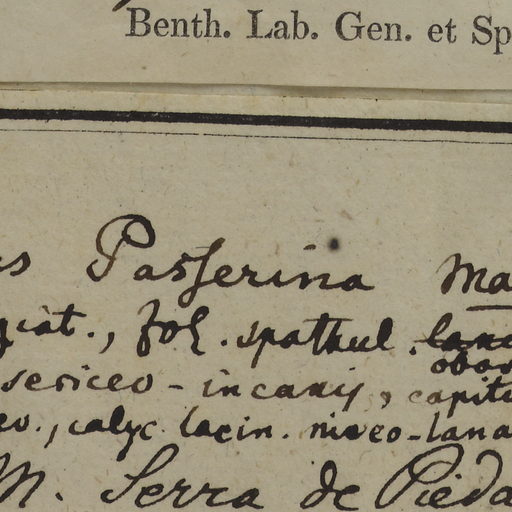 Benth. Lab. Gen. et Sp
Passerina ma
fol. spathul.
sericeo-incanis, capitu
calyc. lacin. niveo-lana
M. Serra de Pieda